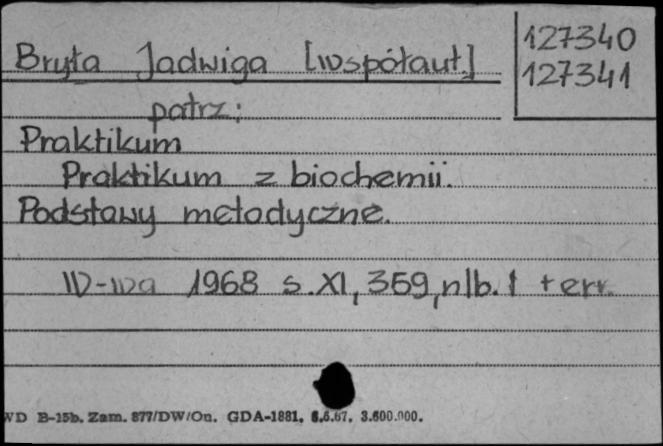 127340
127341
Bryła Jadwiga [współaut.]
patrz:
Praktikum
Praktikum z biochemii.
Podstawy metodyczne.
W-wa 1968 s. XI, 359, nlb. 1 + err.
WD B-15b. Zam. 877/DW/On. GDA-1881. 6.5.67. 3.600.000.